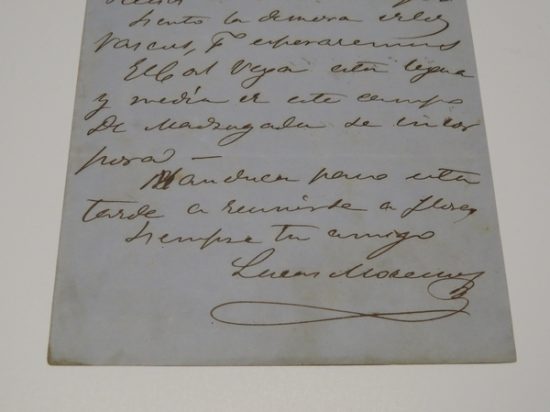 siento la demora de los
vascos, q esperaremos
El Cnl Vega esta legua
y media de este campo
De Madrugada se incor
pora —
Manduca para esta
tarde a reunirse a Flores
Siempre tu amigo
Lucas Moreno